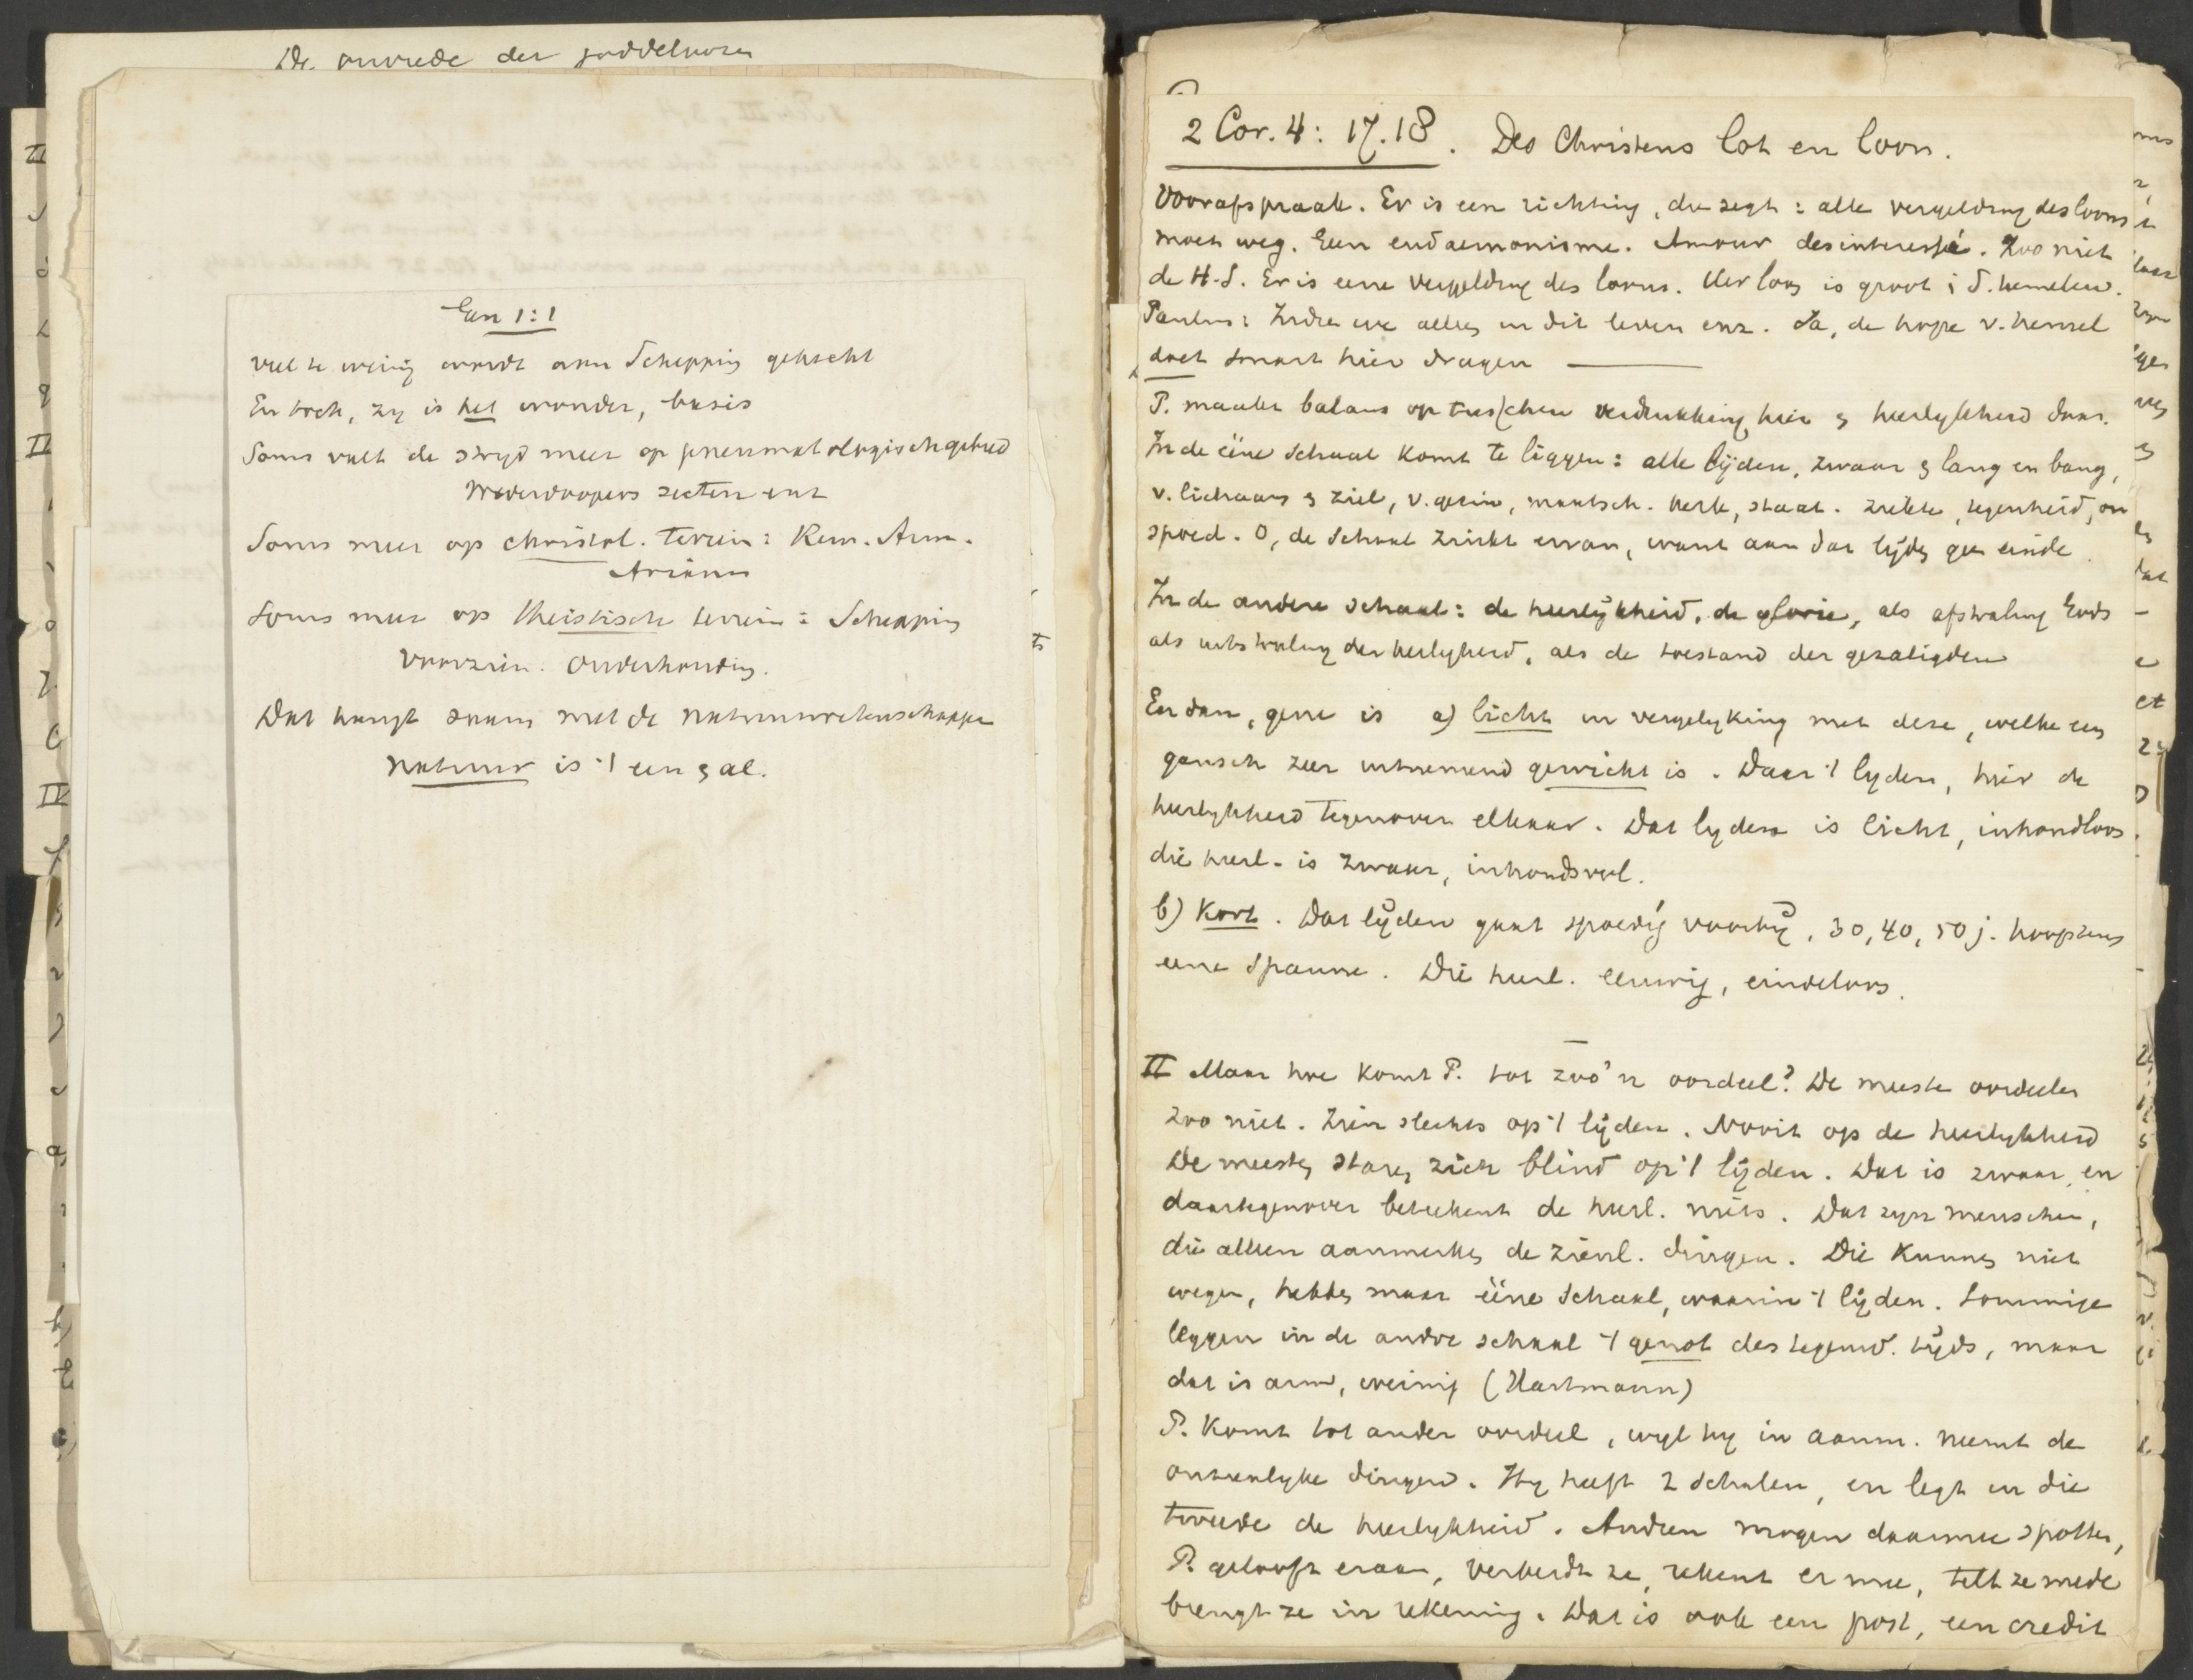 De onvrede der goddeloozen
Gen 1:1
Veel te weinig wordt aan Schepping gehecht
En toch, zy is het wonder, basis
Soms valt de stryd meer op pneumatologisch gebied
Wederdoopers secten enz
Soms meer op christol. terrein: Rem. Arm.
Arianen
Soms meer op theistisch terrein: Schepping
Voorzien. Onderhouding.
Dat hangt saam met de natuurwetenschappen
natuur is 't een & al.
2 Cor. 4: 17.18. Des Christens lot en loon.
Voorafspraak. Er is een richting, die zegt: alle vergelding des loons
moet weg. Geen eudaemonisme. Amour desinteressé. Zoo niet
de H.S. Er is eene vergelding des loons. Uer loon is groot i d. hemelen.
Paulus: Indien we alleen in dit leven enz. Ja, de hope v. hemel
doet smart hier dragen
P. maakt balans op tusschen verdrukking hier & heerlykheid daar.
In de ééne schaal komt te liggen: alle lijden, zwaar & lang en bang,
v. lichaam & ziel, v. gezin, maatsch. kerk, staat. ziekte, tegenheid, on
spoed. O, de schaal zinkt ervan, want aan dat lijden geen einde.
In de andere schaal: de heerlijkheid, de glorie, als afstraling Gods
als uitstraling der heerlykheid, als de toestand der gezaligden
En dan, gene is a) licht in vergelyking met deze, welke een
gansch zeer uitnemend gewicht is. Daar 't lyden, hier de
heerlykheid tegenover elkaar. Dat lyden is licht, inhoudloos.
die heerl. is zwaar, inhoudsvol.
b) Kort. Dat lijden gaat spoedig voorbij, 30, 40, 50 j. hoogstens
eene spanne. Die heerl. eeuwig, eindeloos.
II Maar hoe komt P. tot zoo'n oordeel? De meeste oordeelen
zoo niet. Zien slechts op 't lijden. Nooit op de heerlykheid
De meesten staren zich blind op 't lijden. Dat is zwaar, en
daartegenover beteekent de heerl. niets. Dat zyn menschen,
die alleen aanmerken de zienl. dingen. Die kunnen niet
wegen, hebben maar ééne schaal, waarin 't lijden. Sommige
leggen in de andre schaal 't genot des tegenw. tijds, maar
dat is arm, weinig (Hartmann)
P. komt tot ander oordeel, wyl hy in aanm. neemt de
onzienlyke dingen. Hy heeft 2 schalen, en legt in die
tweede de heerlykheid. Anderen mogen daarmee spotten,
P. gelooft eraan, verbeidt ze, rekent er mee, telt ze mede
brengt ze in rekening. Dat is ook een post, een credit